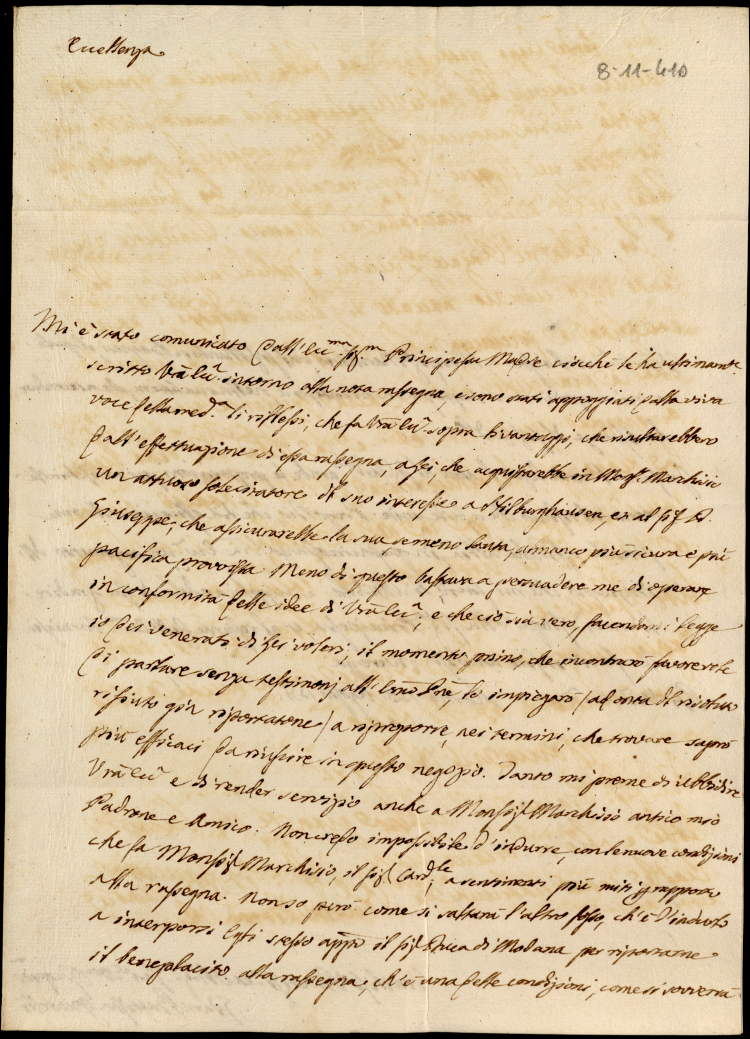 Eccellenza
8-11-410
Mi è stato comunicato dall'Ecc.ma Sig.ra Principessa Madre ciocche le ha ultimamte
scritto Vrã Ecc.a intorno alla nota rassegna, e sono stati appoggiati dalla viva
voce della med.a li riflessi, che fa Vrã Ecc.a sopra li vantaggi, che risultarebbero
dall'effettuazione di essa rassegna, a Lei, che acquistarebbe in Mons.r Marchisio
un attivoso solecitatore di suo interesse a Hilburghausen, et al Sig.r D.
Giuseppe, che assicurarebbe la sua, se meno lauta, almanco più sicura e più
pacifica provvista. Meno di questo bastava a persuadere me di operare
in conformità delle idee di Vrã Ecc.a, e che ciò sia vero, facendomi legge
io dei venerati di Lei voleri, il momento primo, che incontrarò favorevole
di parlare senza testimonj all' Emo Pnē, lo impiegarò /ad onta di risoluto
rifiuto già riportatone/ a riproporre, nei termini, che trovare saprò
più efficaci da riuscire in questo negozio. Tanto mi preme di ubbidire
Vrã Ecc.a e di render servizio anche a Monsig.r Marchisio antico mio
Padrone e Amico. Non credo impossibile d'indurre, con le nuove condizioni
che fa Monsig.r Marchisio, il Sig.r Card.le a sentimenti più miti p rapporto
alla rassegna. Non so però come si saltarà l'altro fosso, ch'è l'indurlo
a interporsi Egli stesso app.o il Sig.r Duca di Modana per riportarne
il beneplacito alla rassegna, ch'è una delle condizioni, come si sovverrà